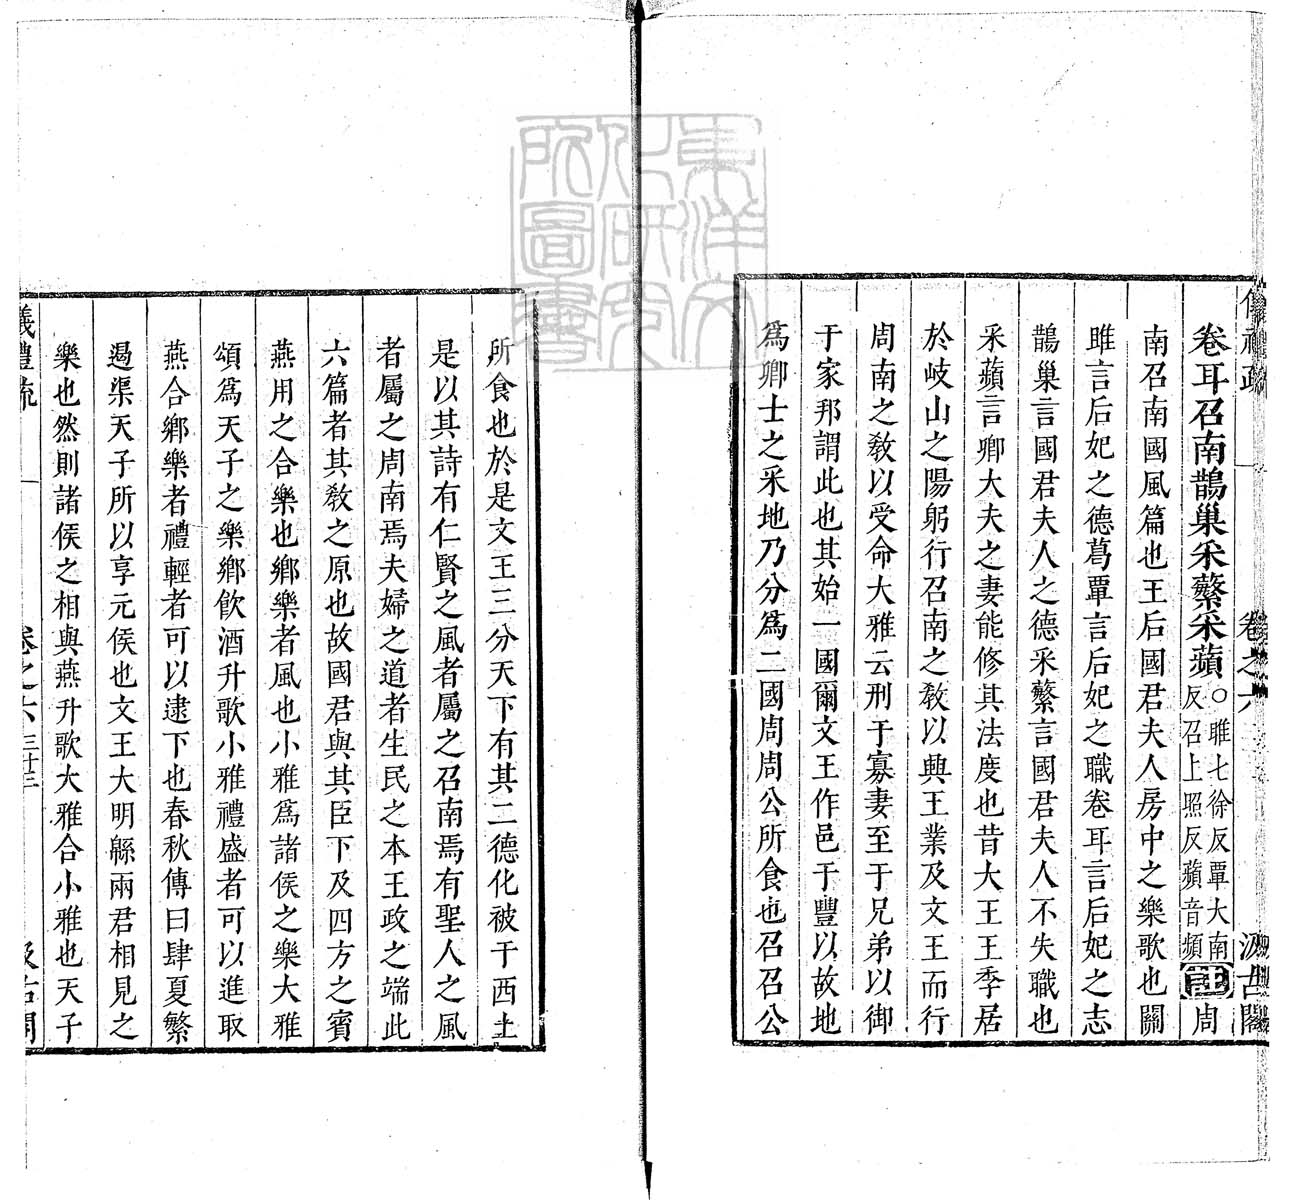 儀禮疏 卷之六 汲古閣
卷耳召南鵲巢采蘩采蘋○雎七徐反覃大南反召上照反蘋音頻註周
南召南國風篇也王后國君夫人房中之樂歌也關
雎言后妃之德葛覃言后妃之職卷耳言后妃之志
鵲巢言國君夫人之德采蘩言國君夫人不失職也
采蘋言卿大夫之妻能修其法度也昔大王王季居
於岐山之陽躬行召南之敎以興王業及文王而行
周南之敎以受命大雅云刑于寡妻至于兄弟以御
于家邦謂此也其始一國爾文王作邑于豐以故地
爲卿士之采地乃分爲二國周周公所食也召召公
所食也於是文王三分天下有其二德化被于西土
是以其詩有仁賢之風者屬之召南焉有聖人之風
者屬之周南焉夫婦之道者生民之本王政之端此
六篇者其敎之原也故國君與其臣下及四方之賓
燕用之合樂也鄕樂者風也小雅爲諸侯之樂大雅
頌爲天子之樂鄕飮酒升歌小雅禮盛者可以進取
燕合鄕樂者禮輕者可以逮下也春秋傳曰肆夏繁
遏渠天子所以享元侯也文王大明緜兩君相見之
樂也然則諸侯之相與燕升歌大雅合小雅也天子
儀禮疏 卷之六 三十三 汲古閣
東洋文化研究所圖書